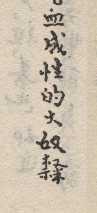 血成性的大奴隸